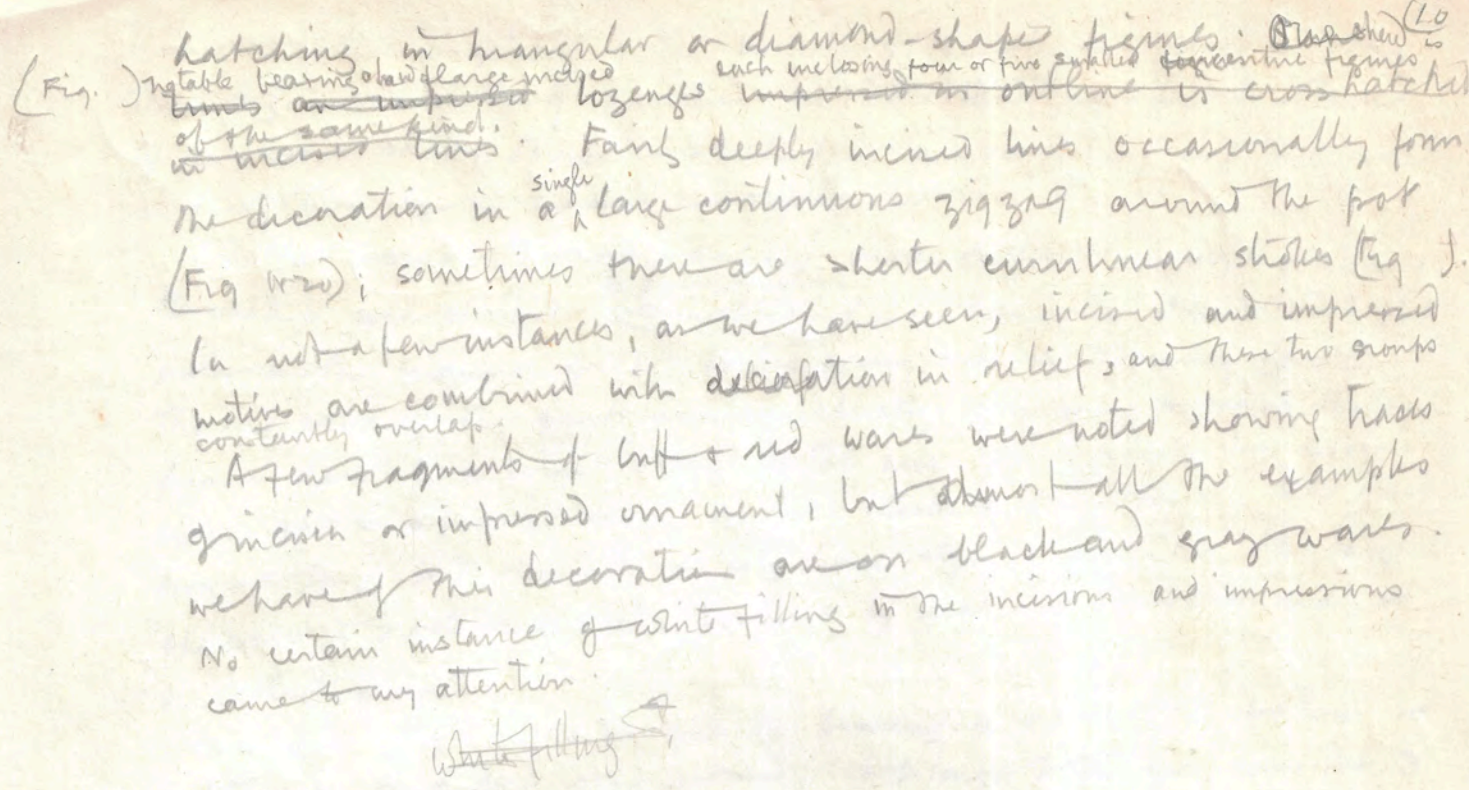 hatching in triangular or diamond-shape figures. One sherd (10
is
(Fig. ) notable bearing a band of large incised each inclosing four or five smaller concentric figures
lines are impressed lozenges impressed in outline is cross hatched
of the same kind.
in incised lines. Fairly deeply incised lines occasionally form
single
the decoration in a large continuous zigzag around the pot
(Fig W20); sometimes there are shorter curvilinear strokes (Fig ).
In not a few instances, as we have seen, incised and impressed
motives are combined with decoration in relief, and these two groups
constantly overlap.
A few fragments of buff + red wares were noted showing traces
of incision or impressed ornament, but almost all the examples
we have of this decoration are on black and gray wares.
No certain instance of white filling in the incisions and impressions
came to my attention.
white filling